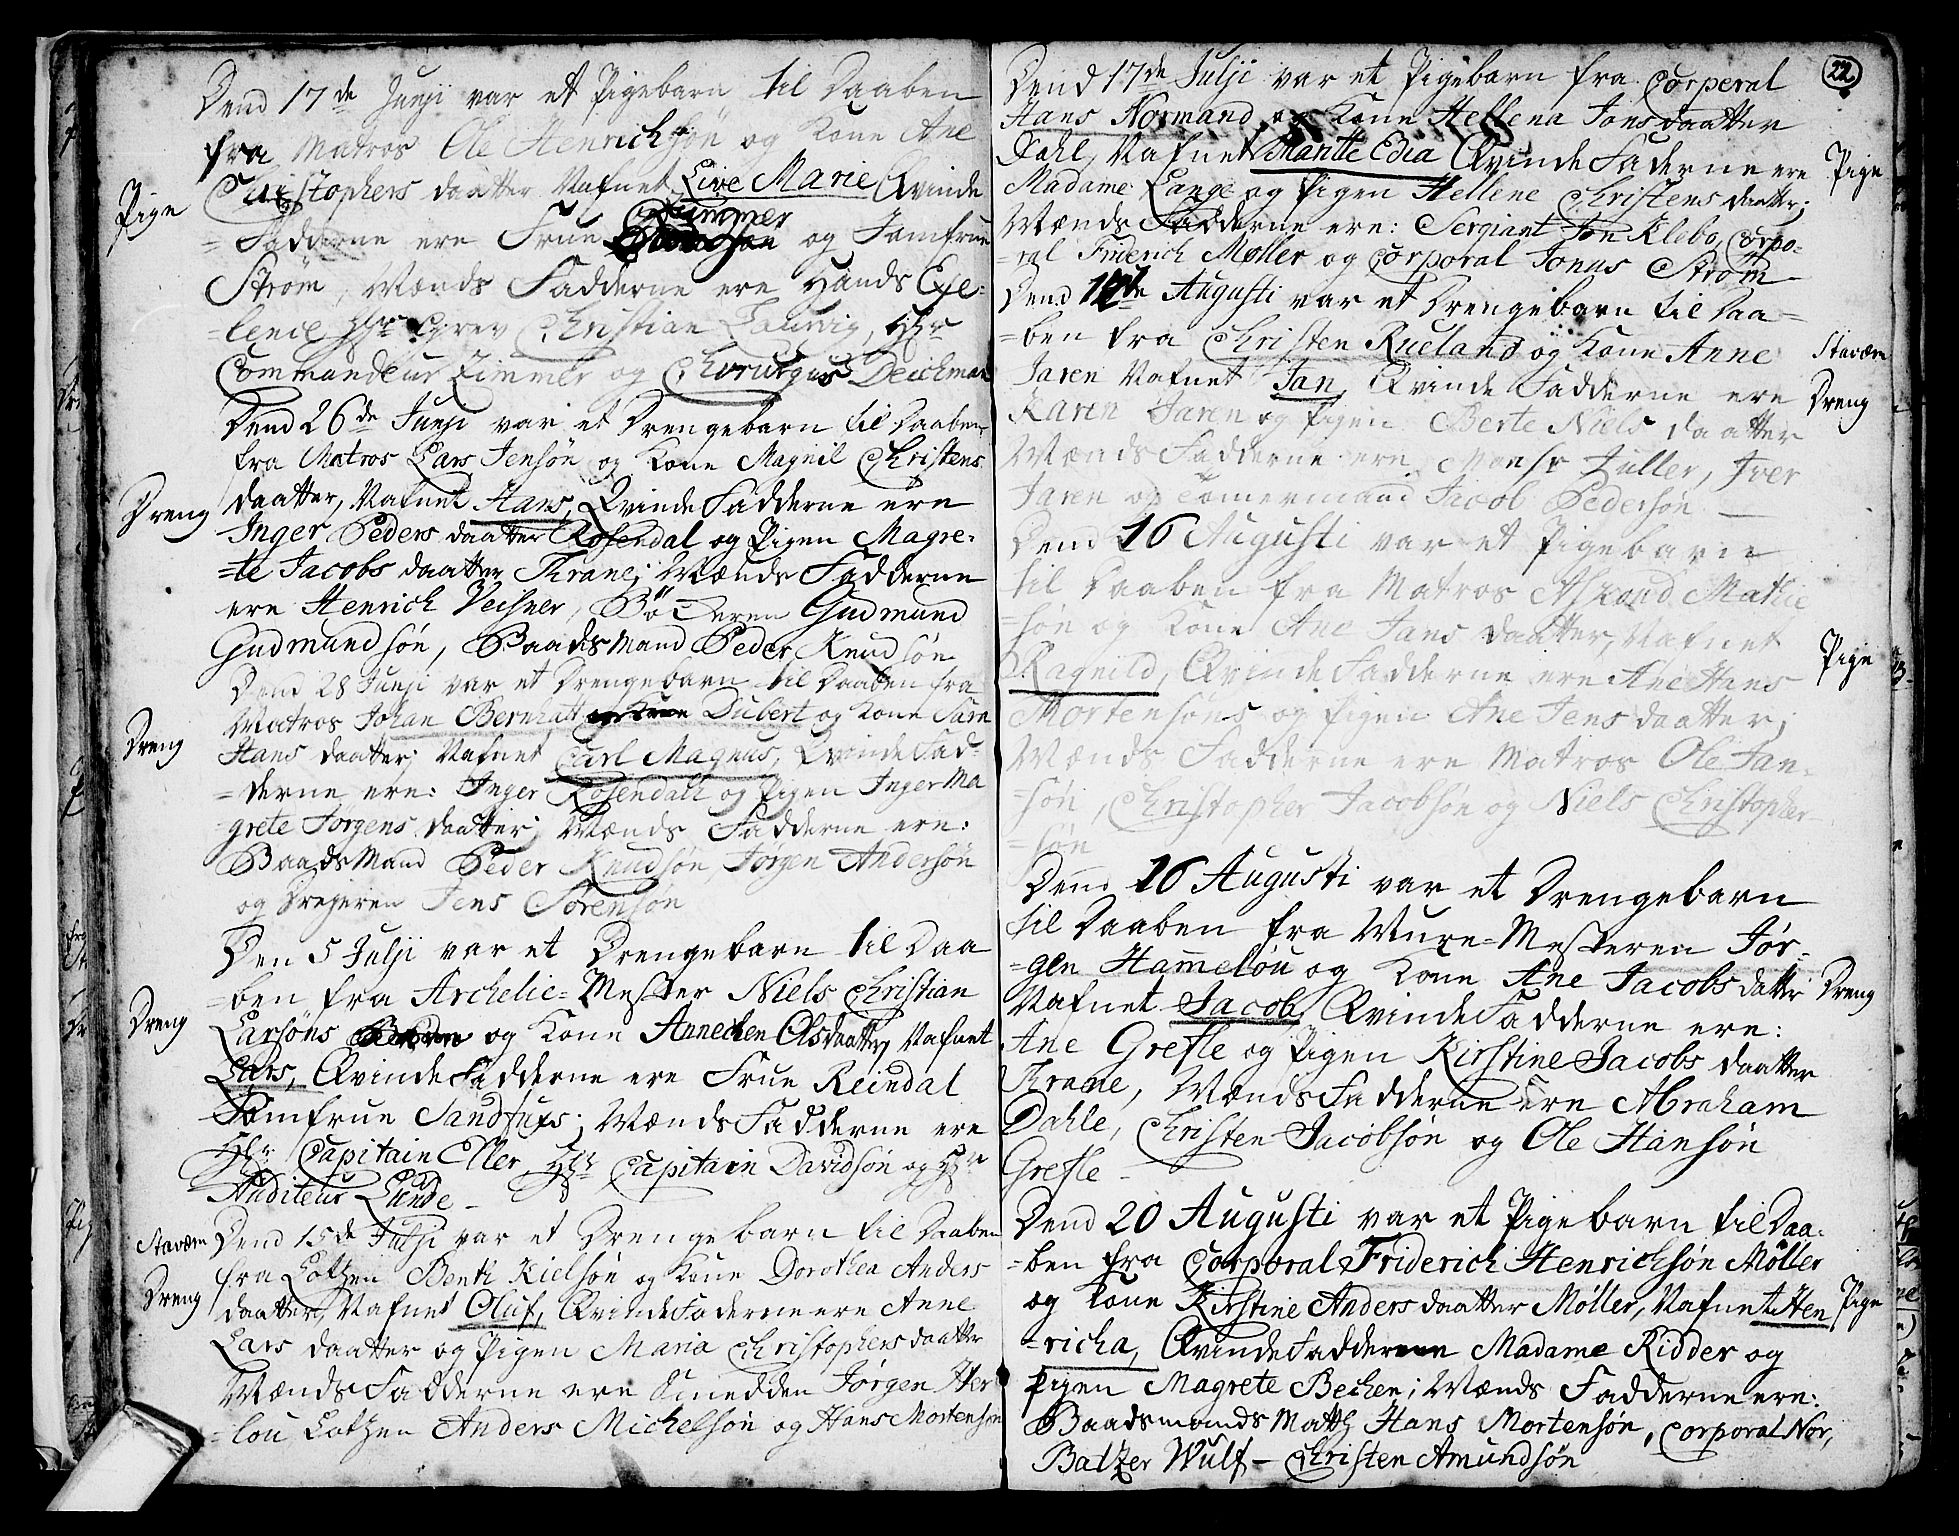 Dend 17de Junji var et Pigebarn til Daaben
fra Matros Ole Henrichsøn og Kone Ane
Christophers daatter Nafnet Live Marie Qvinde
Pige
Zimmer
=Fadderne ere Frue og Jomfrue
Strøm, Mænds Fadderne ere Hands Exe=
=lence Hr Grev Christian Laurvig, Hr
Commandeur Zimmer og Chirurgus Deichman
Dend 26de Junji var et Drengebarn til Daaben
fra Matros Lars Jensøn og Kone Magnil Christens
Dreng
daatter, Nafnet Hans, Qvinde Fadderne ere
Inger Peders daatter Rosendal og Pigen Magre=
=te Jacobs daatter Krane; Mænds Fadderne
ere Henrich Veisner, Bödkeren Gudmund
Gudmundsøn, Baadsmand Peder Knudsøn
Dend 28 Junji var et Drengebarn til Daaben fra
Matros Johan Bernhatt Dubert og Kone Sara
Dreng
Hans daatter; Nafnet Carl Magnus, Qvinde Fad=
=derne ere: Inger Rosendall og Pigen Inger Ma
grete Jørgens daatter; Mænds Fadderne ere:
Baads Mand Peder Knudsøn, Jørgen Andersøn
og Dreyeren Jens Sørensøn
Den 5 Julji var et Drengebarn til Daa
=ben fra Archelie=Mester Niels Christian
Dreng
Larsøns og Kone Annechen Olsdaatter, Nafnet
Lars, Qvinde Fadderne ere Frue Reindal
Jomfrue Sandfuxs; Mænds Fadderne ere
Hr Capitain Eller, Hr Capitain Davidsøn og Hr
Auditeur Lunde
Staværn
Dend 15de Julji var et Drengebarn til Daaben
fra Lotzen Benth Kielsøn og Kone Dorothea Anders
Dreng
daatter, Nafnet Oluf, Qvinde Faderne ere Anne
Lars daatter og Pigen Maria Christophersdaatter
Mænds Fadderne ere Smedden Jørgen Her
=lou Lotzen Anders Michelsøn og Hans Mortensøn
22
Dend 17de Julji var et Pigebarn fra Corperal
Hans Normand og Kone Hellena Jonsdaatter
Dahl, Nafnet Mantte Edia Qvinde Faderne ere
Pige
Madame Lange og Pigen Hellene Christens daatter;
Mænds Fadderne ere: Sergiant Jon Klebo, Corpo=
=ral Friderich Møller og Corporal Jonas Strøm
Dend Augusti var et Drengebarn til Daa=
=ben fra Christen Rueland og Kone Anne
Staværn
Jaren Nafnet Jan, Qvinde Fadderne ere
Dreng
Karen Jaren og Pigen Berte Niels daatter
Mænds Fadderne ere Monsr Zuller, Iver
Jaren og Tømermand Jacob Pedersøn
Dend 16 Augusti var et Pigebarn
til Daaben fra Matros Askoud Mathie
=søn og Kone Ane Jans daatter, Nafnet
Pige
Ragnild, Qvinde Fadderne ere Ane Hans
Mortensøns og Pigen Ane Jens daatter;
Mænds Fadderne ere Matros Ole Jan=
=søn, Christopher Jacobsøn og Niels Christopher
=søn
Dend 16 Augusti var et Drengebarn
til Daaben fra Mure=Mesteren Jør=
=gen Hammelou og Kone Ane Jacobs datter
Dreng
Nafnet Jacob Qvinde Fadderne ere:
Ane Grefle og Pigen Kirstine Jacobs daatter
Krane, Mænds Fadderne ere Abraham
Dahle, Christen Jacobsøn og Ole Hansøn
Grefle
Dend 20 Augusti var et Pigebarn til Daa=
=ben fra Corporal Friderich Henrichsøn Møller
og Kone Kirstine Anders daatter Møller, Nafnet Hen
Pige
=richa, Qvinde Fadderne Madame Ridder og
Pigen Magrete Bechen; Mænds Fadderne ere:
Baadsmands Matth Hans Mortensøn, Corporal Nor,
Baltzer Wulf - Christen Amundsøn